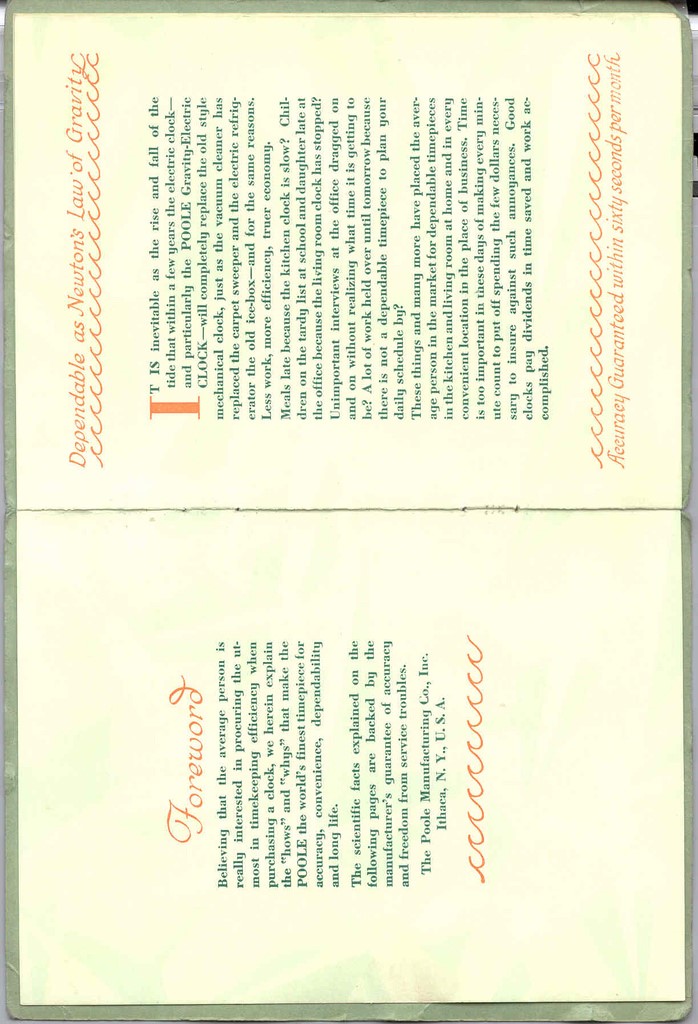 Foreword
Believing that the average person is
really interested in procuring the ut-
most in timekeeping efficiency when
purchasing a clock, we herein explain
the "hows" and "whys" that make the
POOLE the world's finest timepiece for
accuracy, convenience, dependability
and long life.
The scientific facts explained on the
following pages are backed by the
manufacturer's guarantee of accuracy
and freedom from service troubles.
The Poole Manufacturing Co., Inc.
Ithaca, N. Y., U. S. A.
Dependable as Newton's Law of Gravity
IT IS inevitable as the rise and fall of the
tide that within a few years the electric clock—
and particularly the POOLE Gravity-Electric
CLOCK—will completely replace the old style
mechanical clock, just as the vacuum cleaner has
replaced the carpet sweeper and the electric refrig-
erator the old ice-box—and for the same reasons.
Less work, more efficiency, truer economy.
Meals late because the kitchen clock is slow? Chil-
dren on the tardy list at school and daughter late at
the office because the living room clock has stopped?
Unimportant interviews at the office dragged on
and on without realizing what time it is getting to
be? A lot of work held over until tomorrow because
there is not a dependable timepiece to plan your
daily schedule by?
These things and many more have placed the aver-
age person in the market for dependable timepieces
in the kitchen and living room at home and in every
convenient location in the place of business. Time
is too important in these days of making every min-
ute count to put off spending the few dollars neces-
sary to insure against such annoyances. Good
clocks pay dividends in time saved and work ac-
complished.
Accuracy Guaranteed within sixty seconds per month